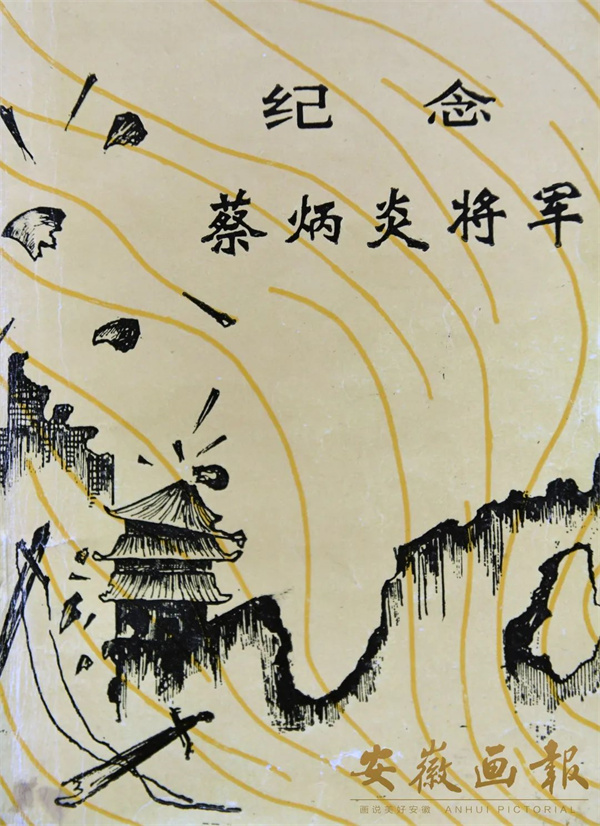 纪念
蔡炳炎将军
安徽画报
画说美好安徽 ANHUI PICTORIAL